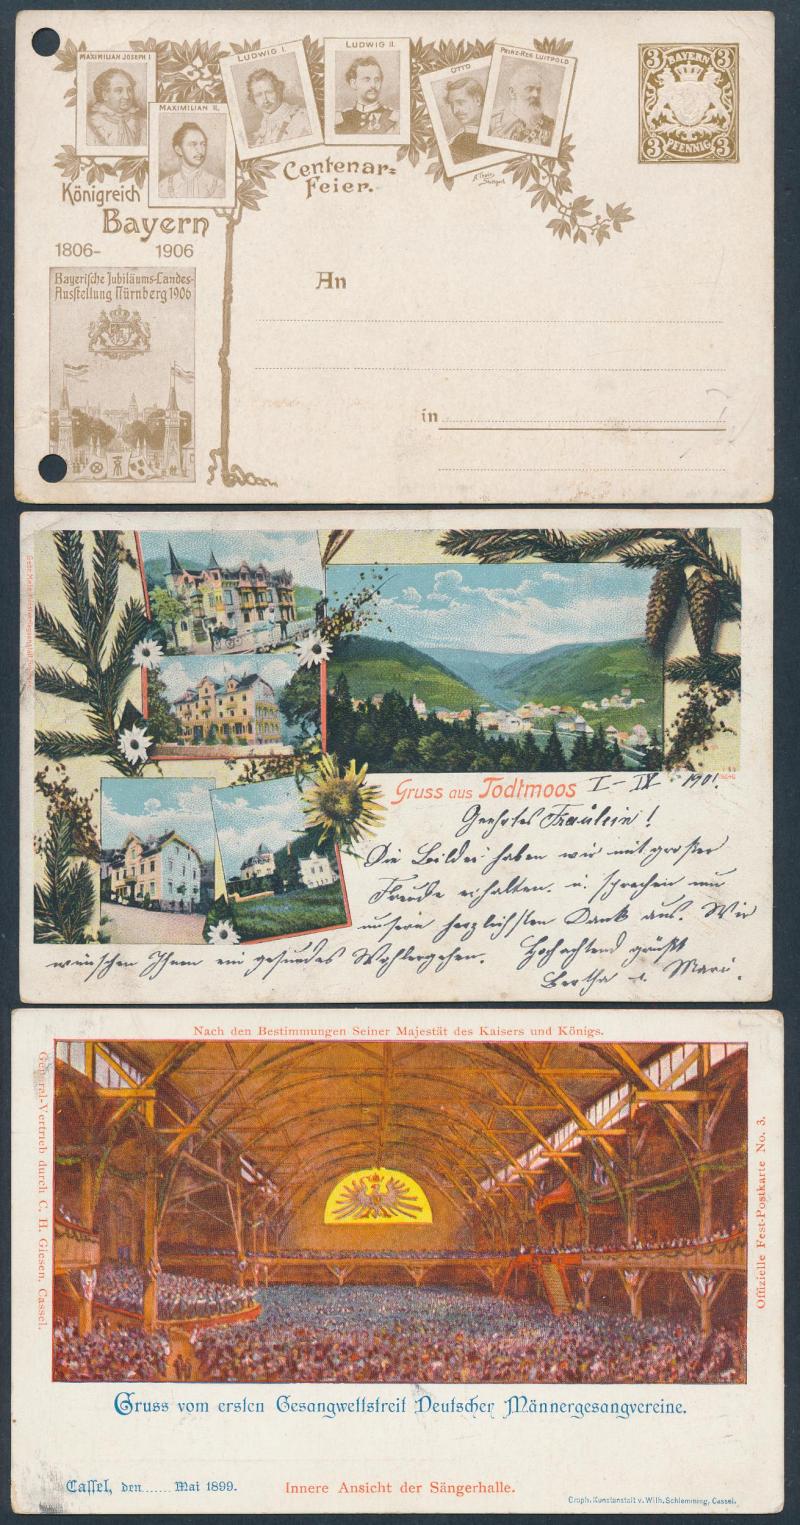 MAXIMILIAN JOSEPH I
MAXIMILIAN II.
LUDWIG I.
LUDWIG II.
OTTO
PRINZ-REG LUITPOLD
BAYERN
3 3
3 PFENNIG 3
Centenar=
Feier.
Königreich
Bayern
1806- 1906
Bayerische Jubiläums-Landes-
Ausstellung Nürnberg 1906
An
in
Gruss aus Todtmoos I-IX-1901.
Geehrtes Fräulein!
Die Bilder haben wir mit großer
Freude erhalten. u. sprechen nun
unsern herzlichsten Dank aus. Wir
wünschen Ihnen ein gesundes Wohlergehen. Hochachtend grüßt
Bertha u. Marie.
Nach den Bestimmungen Seiner Majestät des Kaisers und Königs.
General-Vertrieb durch C. H. Giesen, Cassel.
Offizielle Fest-Postkarte No. 3.
Gruss vom ersten Gesangwettstreit Deutscher Männergesangvereine.
Cassel, den....... Mai 1899. Innere Ansicht der Sängerhalle.
Graph. Kunstanstalt v. Wilh. Schlemming, Cassel.